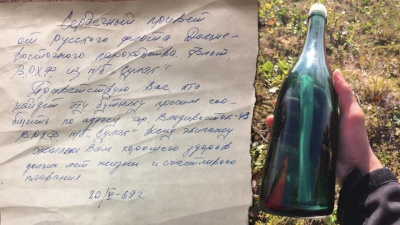 Сердечный привет
от Русского флота Дальне-
восточного пароходства Флот
ВРХФ из п/б "Сулак"
Приветствую Вас кто
найдет эту бутылку просим сооб-
щить по адресу гор. Владивосток-43
ВРХФ п/б "Сулак" всему экипажу
желаем Вам хорошего здоровья
долгих лет жизни и счастливого
плавания
20/VI-69г